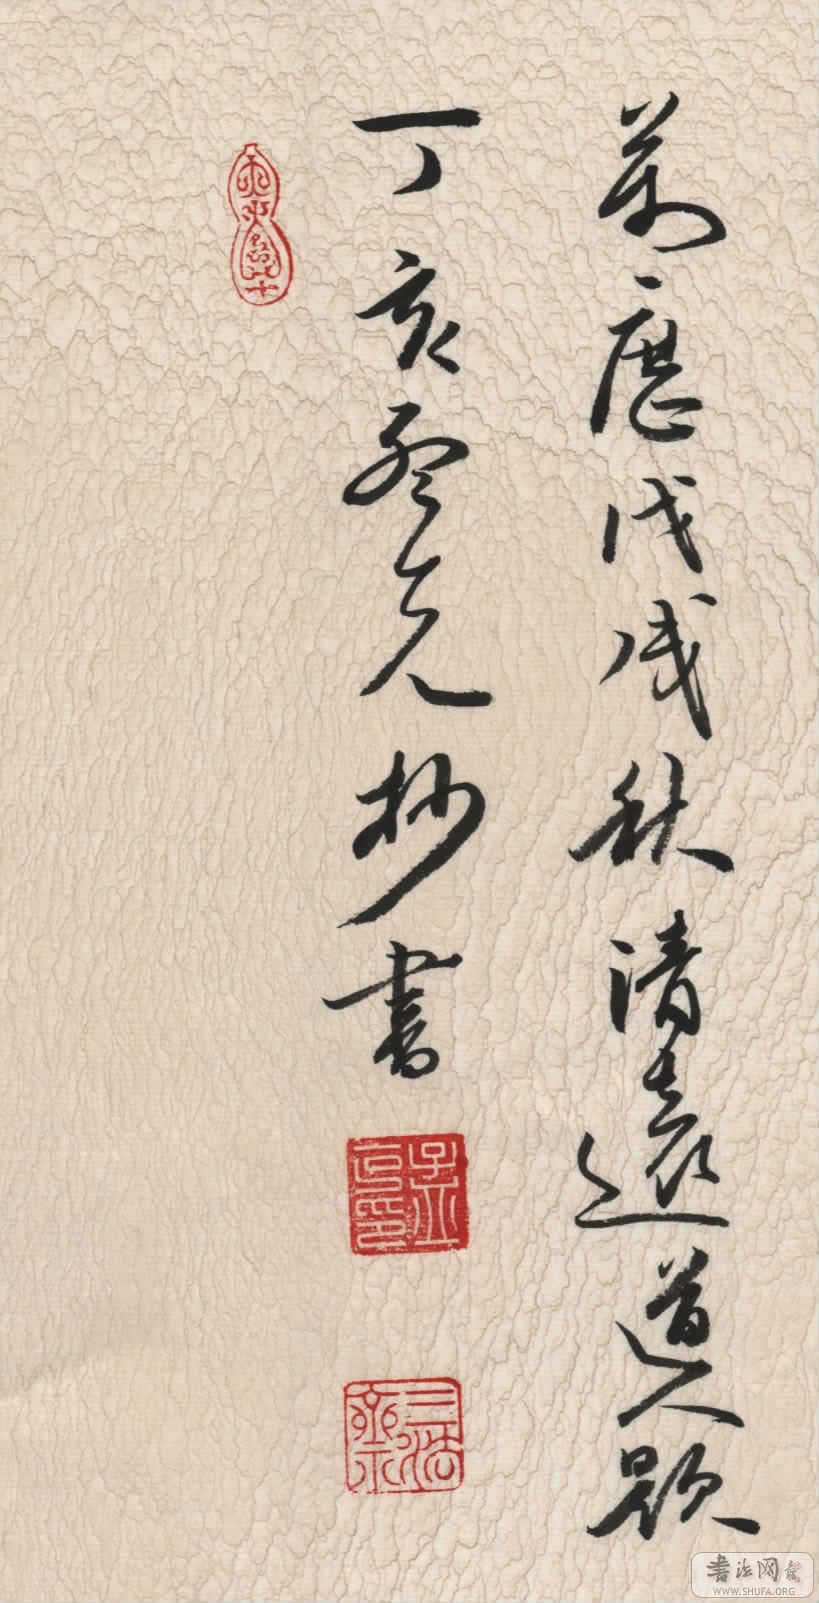 萬曆戊戌秋清遠道人題
丁亥抄書
書法网
WWW.SHUFA.ORG